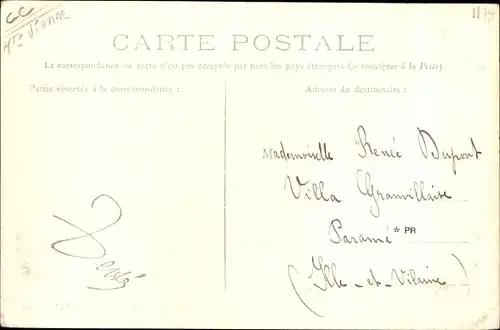 CC
Hte Vienne
CARTE POSTALE
La correspondance au recto n'est pas acceptée par tous les pays étrangers (se renseigner à la Poste)
Partie réservée à la correspondance :
Adresse du destinataire :
Mademoiselle Renée Dupont
Villa Granvillaise
Paramé * PR
(Ille-et-Vilaine)